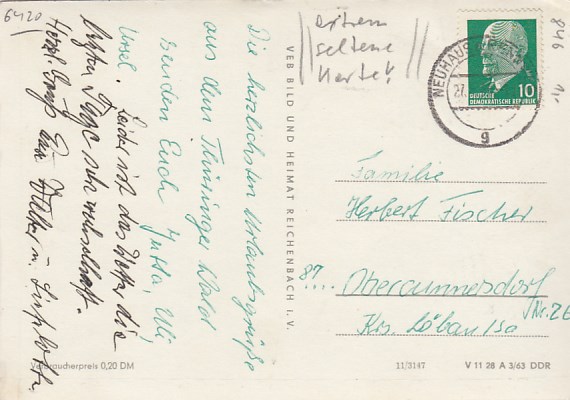 6420
Die herzlichsten Urlaubsgrüße
aus dem Thüringer Wald
senden Euch Jutta, Uli
Ursel. Leider ist das Wetter die
letzten Tage sehr
Herzl. Grüße
Verbraucherpreis 0,20 DM
VEB BILD UND HEIMAT REICHENBACH I. V.
extrem
seltene
Karte!
846
NEUHAUS
27.
g
DEUTSCHE
DEMOKRATISCHE REPUBLIK
10
Familie
Herbert Fischer
87....
Obercunnersdorf
Nr. 26
Krs. Löbau/Sa
11/3147
V 11 28 A 3/63 DDR